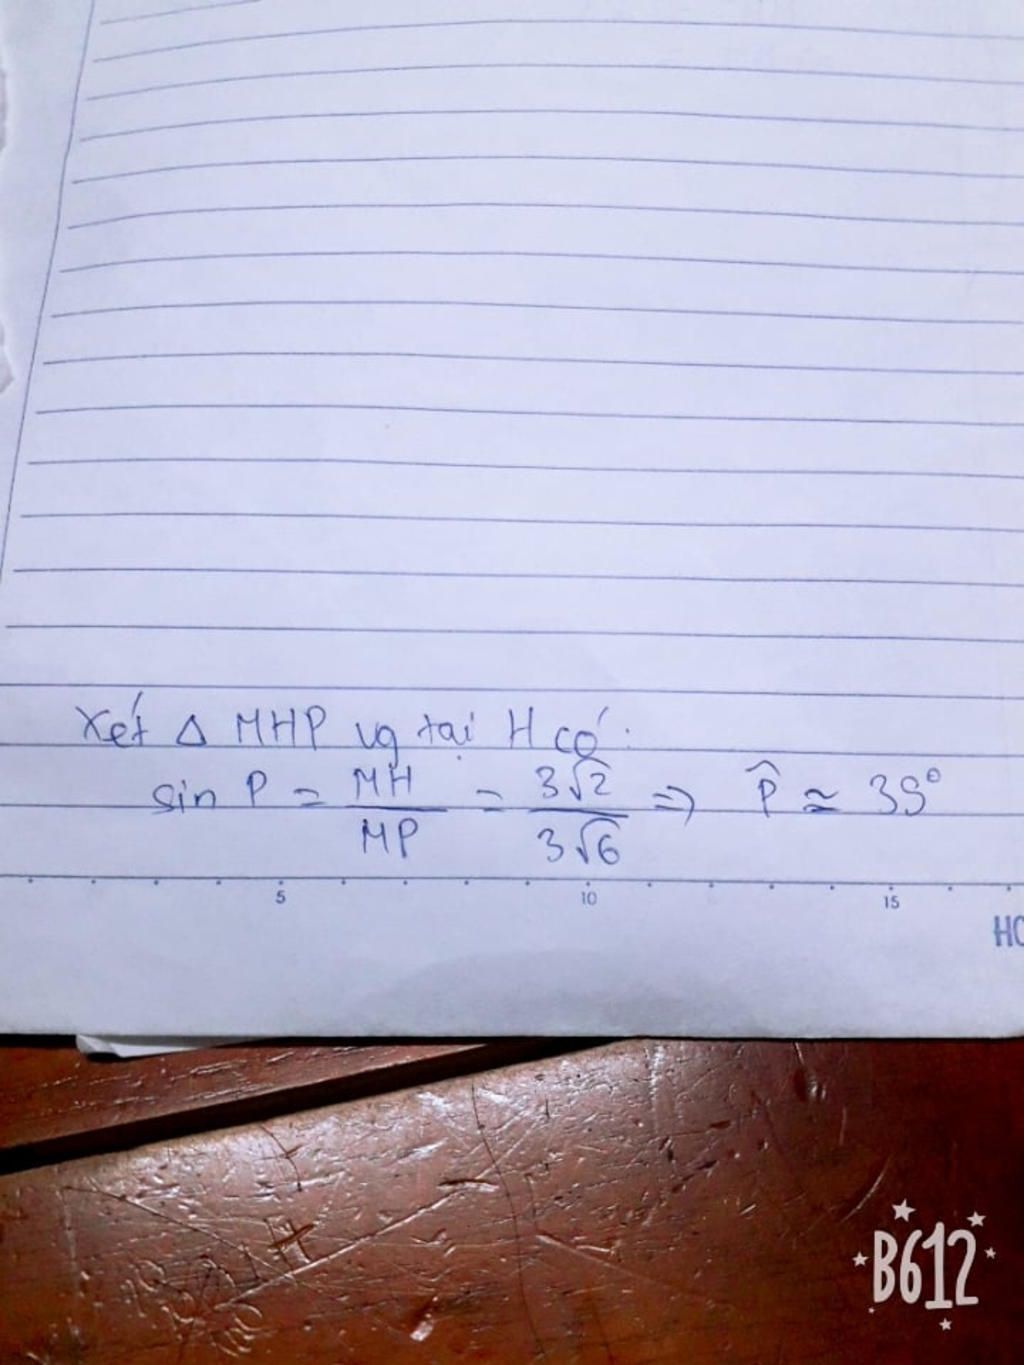 Xét Δ MHP vg tại H có:
sin P = MH/MP = 3√2/3√6 ⇒ P̂ ≃ 35°
5 10 15
HO
B612